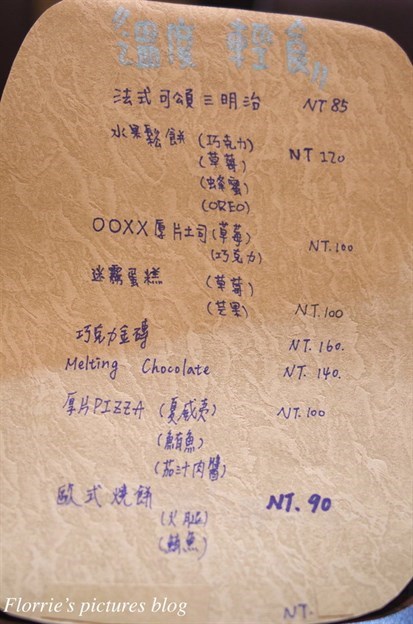 溫度 輕食
法式可頌三明治 NT 85
水果鬆餅 (巧克力) NT 120
(草莓)
(蜂蜜)
(OREO)
OOXX厚片土司 (草莓) NT.100
(巧克力)
迷霧蛋糕 (草莓)
(芒果) NT.100
巧克力金磚 NT.160.
Melting Chocolate NT.140.
厚片PIZZA (夏威夷) NT.100
(鮪魚)
(茄汁肉醬)
歐式燒餅 NT.90
(火腿)
(鮪魚)
NT.
Florrie's pictures blog